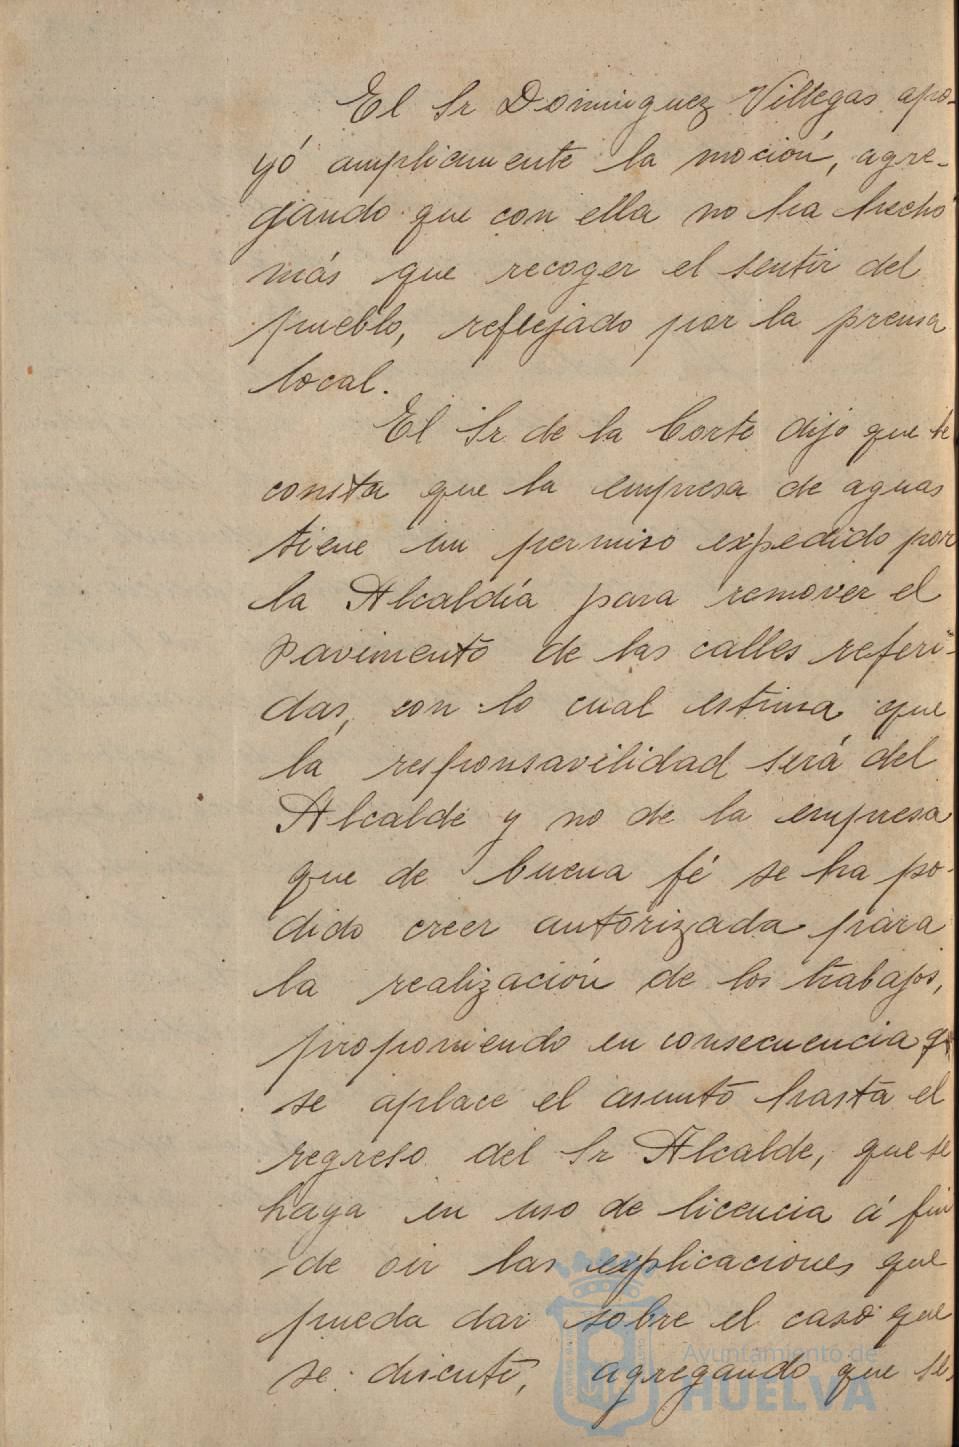 El Sr Dominguez Villegas apo-
yó ampliamente la moción, agre-
gando que con ella no ha hecho
más que recoger el sentir del
pueblo, reflejado por la prensa
local.
El Sr de la Corte dijo que le
consta que la empresa de aguas
tiene un permiso expedido por
la Alcaldía para remover el
pavimento de las calles referi-
das, con lo cual estima que
la responsavilidad será del
Alcalde y no de la empresa
que de buena fé se ha po-
dido creer autorizada para
la realización de los trabajos,
proponiendo en consecuencia q
se aplace el asunto hasta el
regreso del Sr Alcalde, que se
haya en uso de licencia á fin
de oir las explicaciones que
pueda dar sobre el caso que
se discute, agregando que
Ayuntamiento de
HUELVA